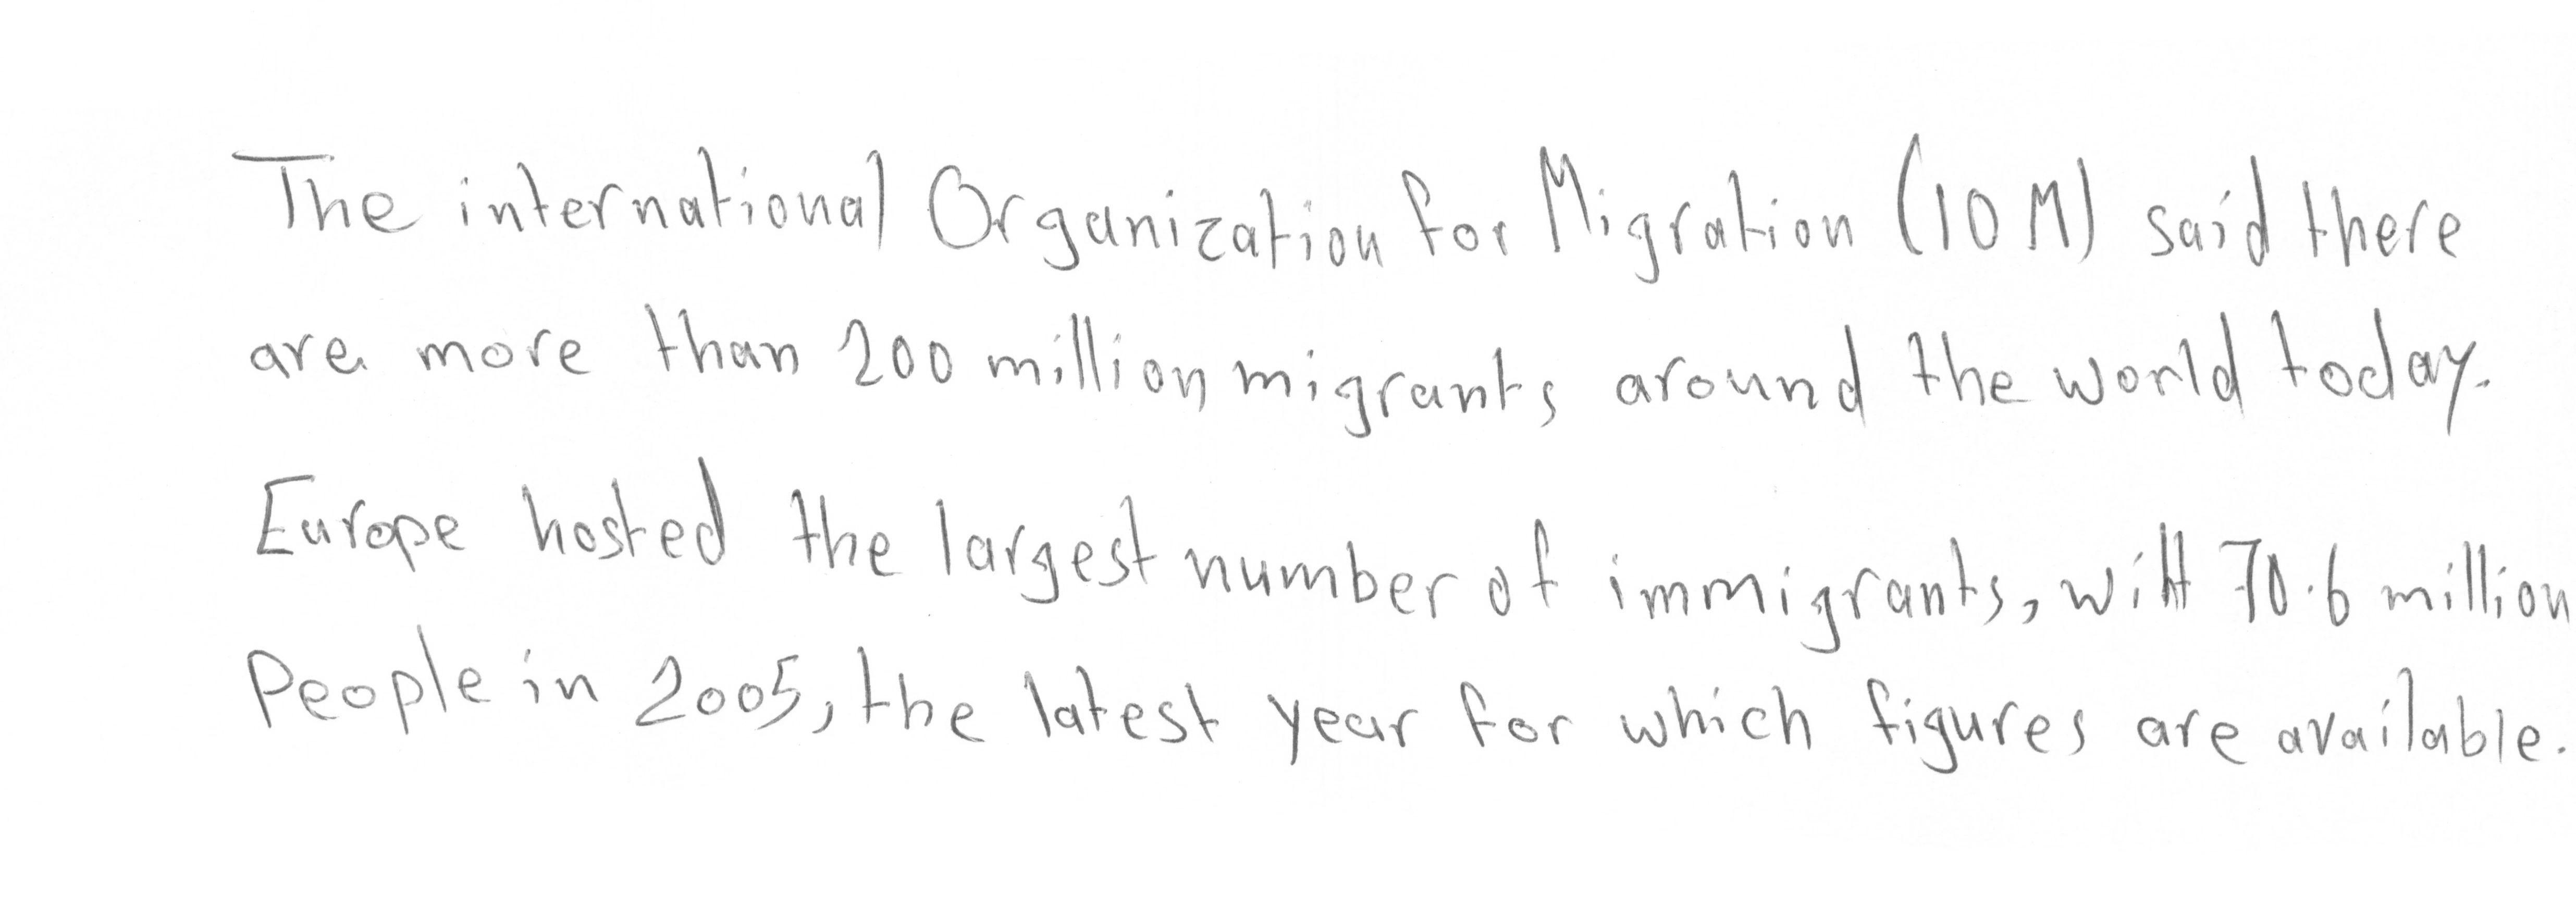 The international Organization for Migration (IOM) said there
are more than 200 million migrants around the world today.
Europe hosted the largest number of immigrants, with 70.6 million
People in 2005, the latest year for which figures are available.